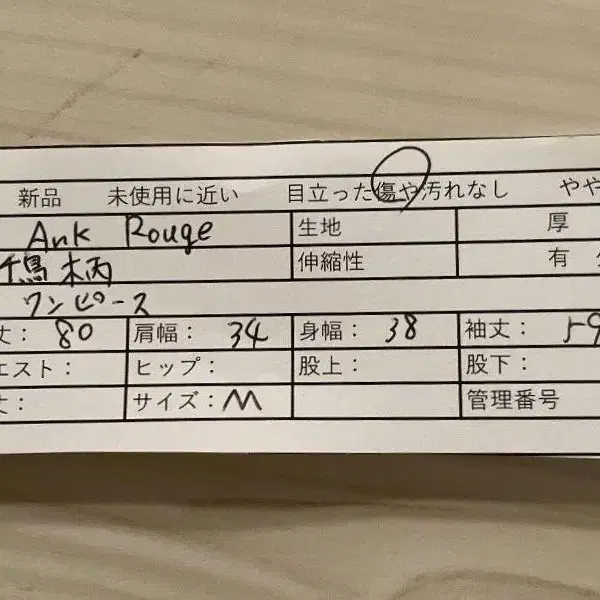 新品 未使用に近い 目立った傷や汚れなし やや
Ank Rouge 生地 厚
千鳥柄 伸縮性 有
ワンピース
丈: 80 肩幅: 34 身幅: 38 袖丈: 59
エスト: ヒップ: 股上: 股下:
丈: サイズ: M 管理番号